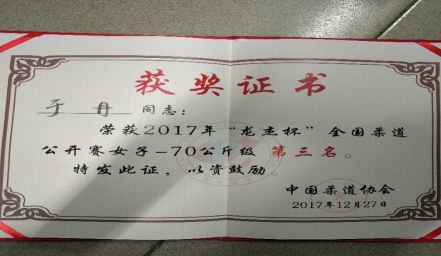 获奖证书
于丹 同志:
荣获2017年“龙杰杯”全国柔道
公开赛女子-70公斤级 第三名。
特发此证,以资鼓励。
中国柔道协会
2017年12月27日